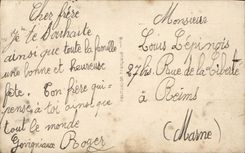 Cher frère
Je te souhaite
ainsi que toute la famille
une bonne et heureuse
fête. Ton frère qui
pense à toi ainsi que
tout le monde
Roger
Monsieur
Louis Lépinois
27 bis. Rue de la Liberté
à Reims
(Marne)